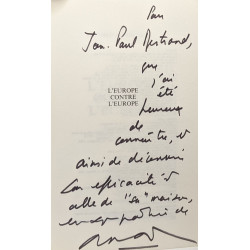 Pour
Jean-Paul Bertrand,
que
j'ai
été
heureux
L'EUROPE
CONTRE
L'EUROPE
de
connaître, et
ainsi de découvrir
son efficacité et
celle de "sa" maison,
de